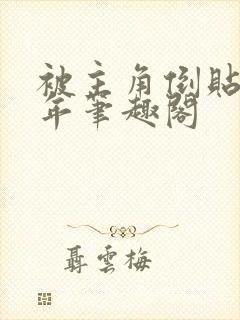 被主角倒貼
年筆趣閣
聶雲梅